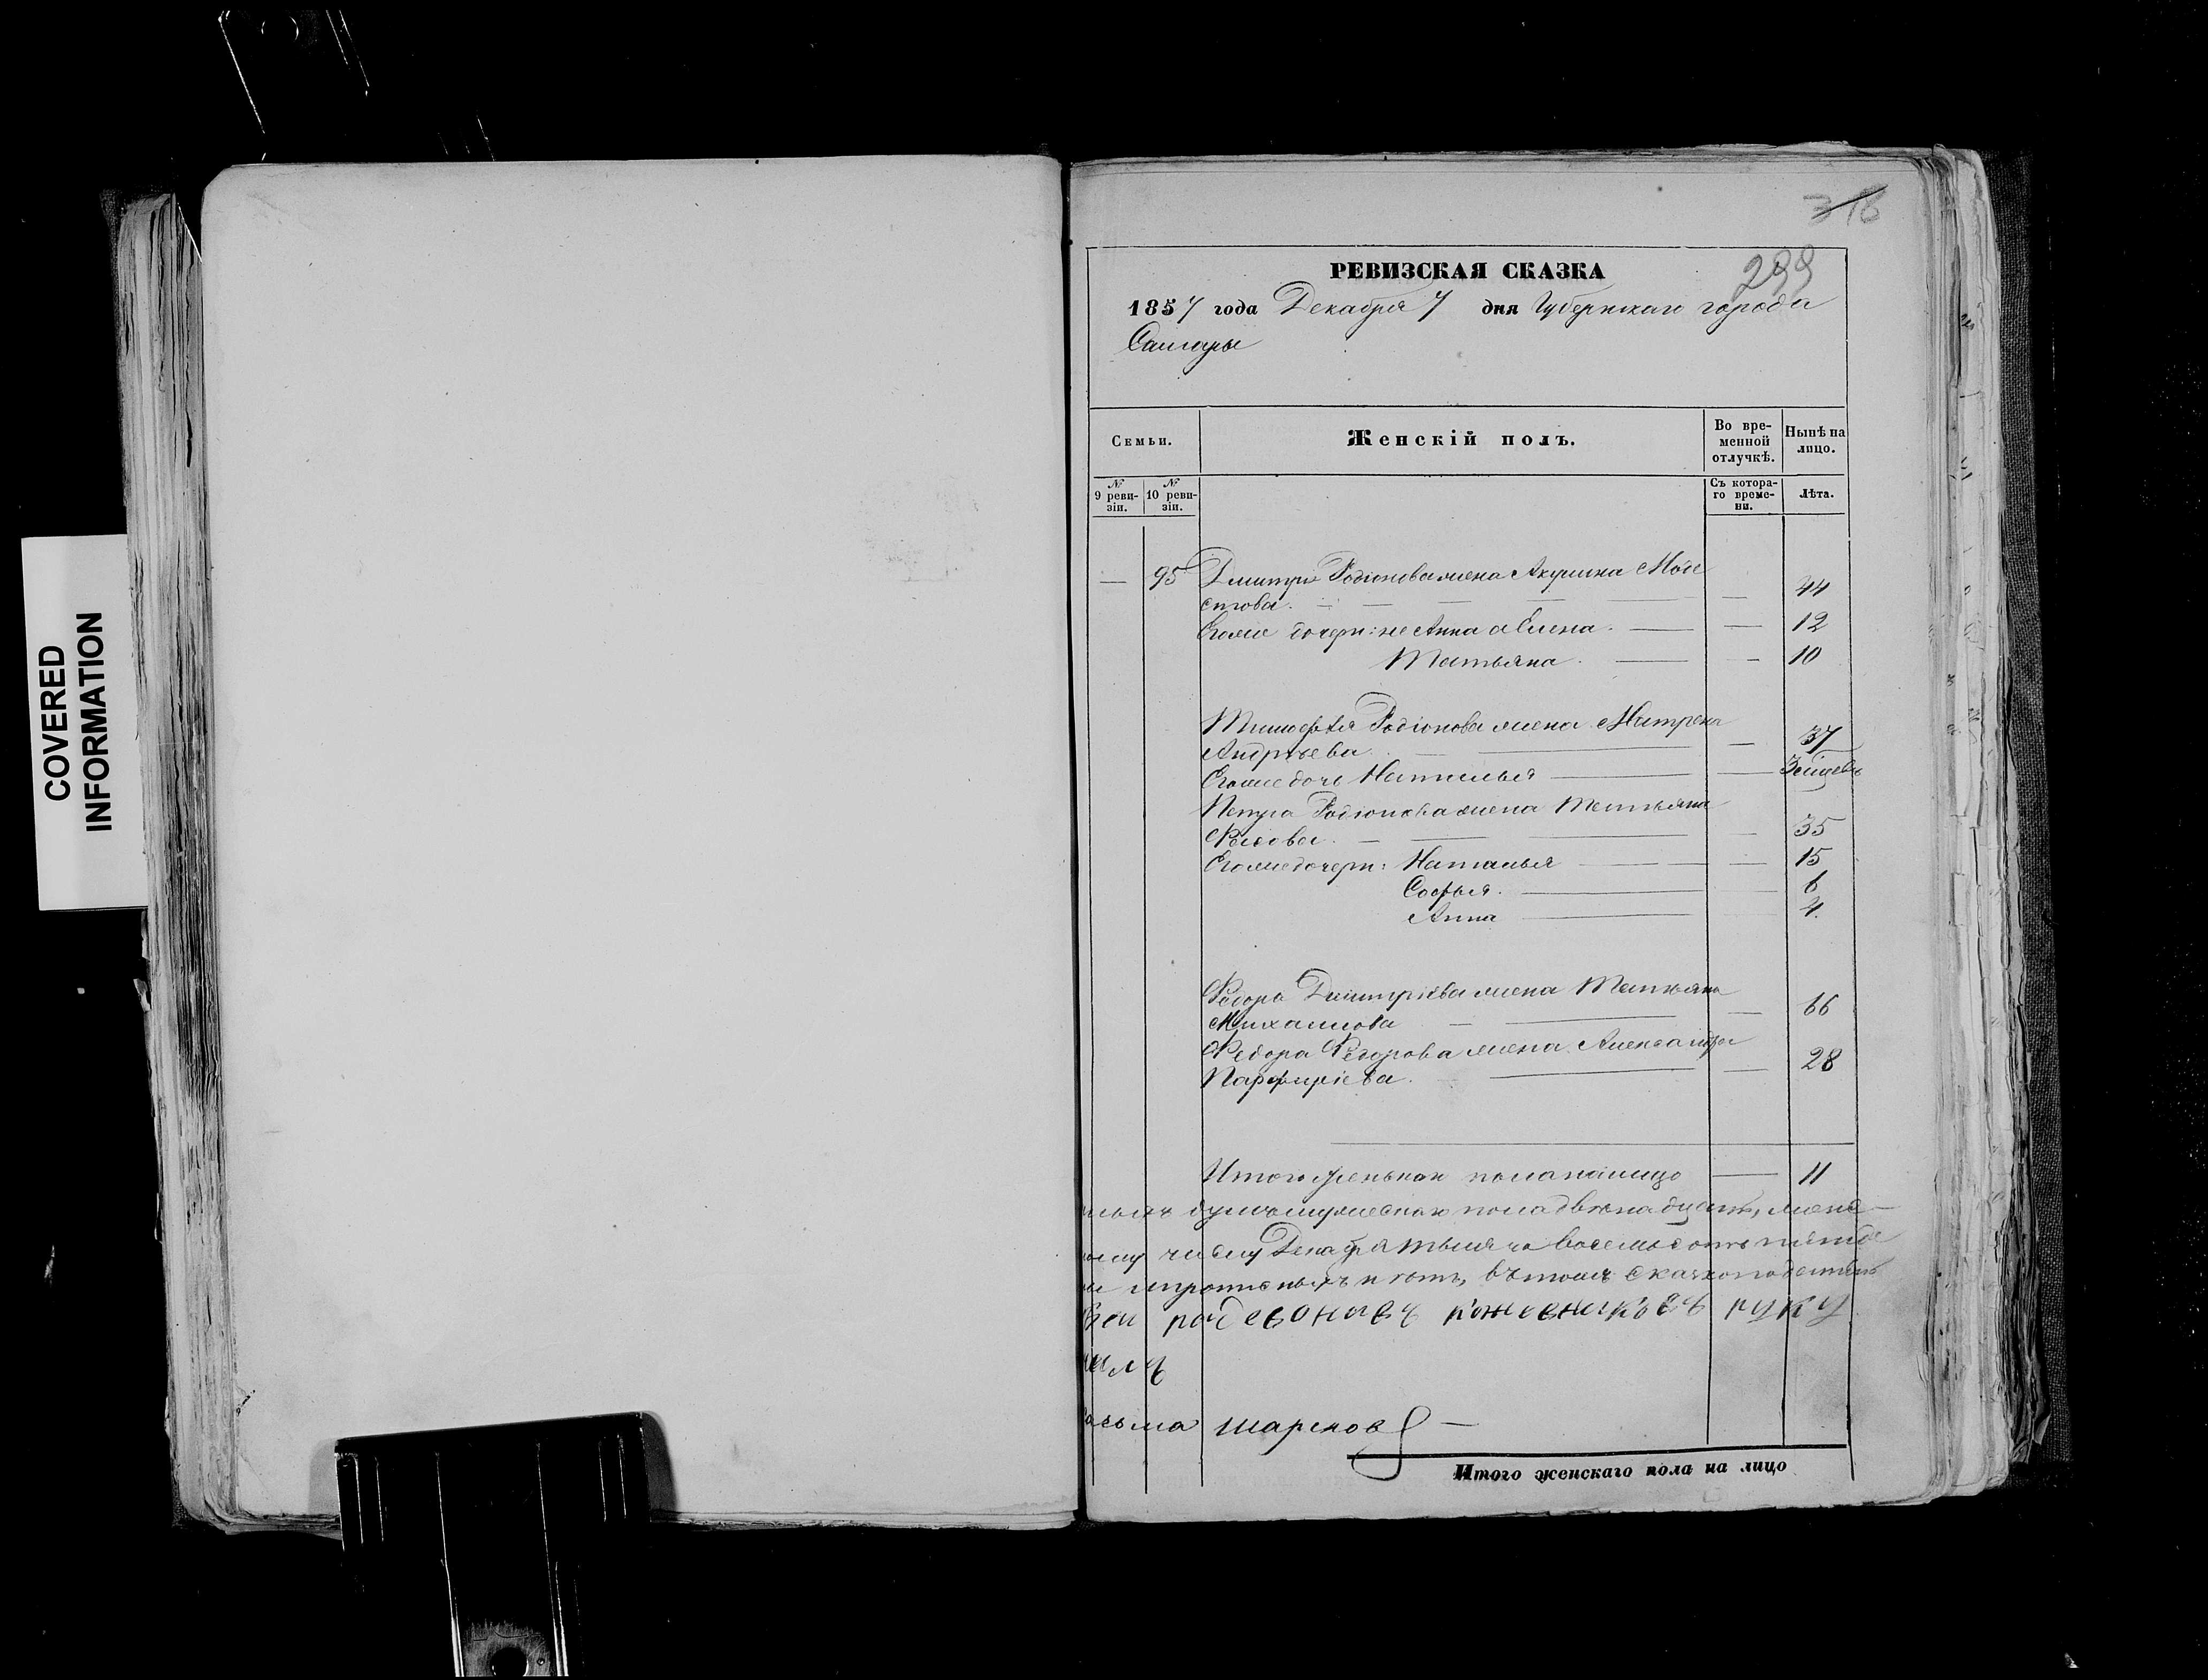 COVERED
INFORMATION
316
299
РЕВИЗСКАЯ СКАЗКА
1857 года Декабря 7 дня Губернскаго города
Самары
Семьи.
Женскій полъ.
Во временной отлучкѣ.
Нынѣ на лицо.
№ 9 ревизіи.
№ 10 ревизіи.
Съ котораго времени.
Лѣта.
— 95 Дмитрія Родіонова жена Акулина Моде
стова. — — 44
Егоже дочери: не Анна а Елена. — — 12
Татьяна. — — 10
Тимофѣя Родіонова жена Матрена
Андрѣева. — — 37
Егоже дочь Наталья — —
Петра Родіонова жена Татьяна
— — 35
Егоже дочери: Наталья — — 15
Софья. — — 6
Анна — 4.
Федора Дмитріева жена Татьяна
Михайлова — — 66
Федора Федорова жена Александра
Парфиріева. — — 28
Итого женскаго пола налицо — 11
душъ мужескаго пола двенадцать, женс-
числу Декабря тысяча восемьсотъ пятьде
и пропускныхъ нѣтъ, въ томъ сказкоподатель
кожевниковъ руку
шарапов
Итого женскаго пола на лицо